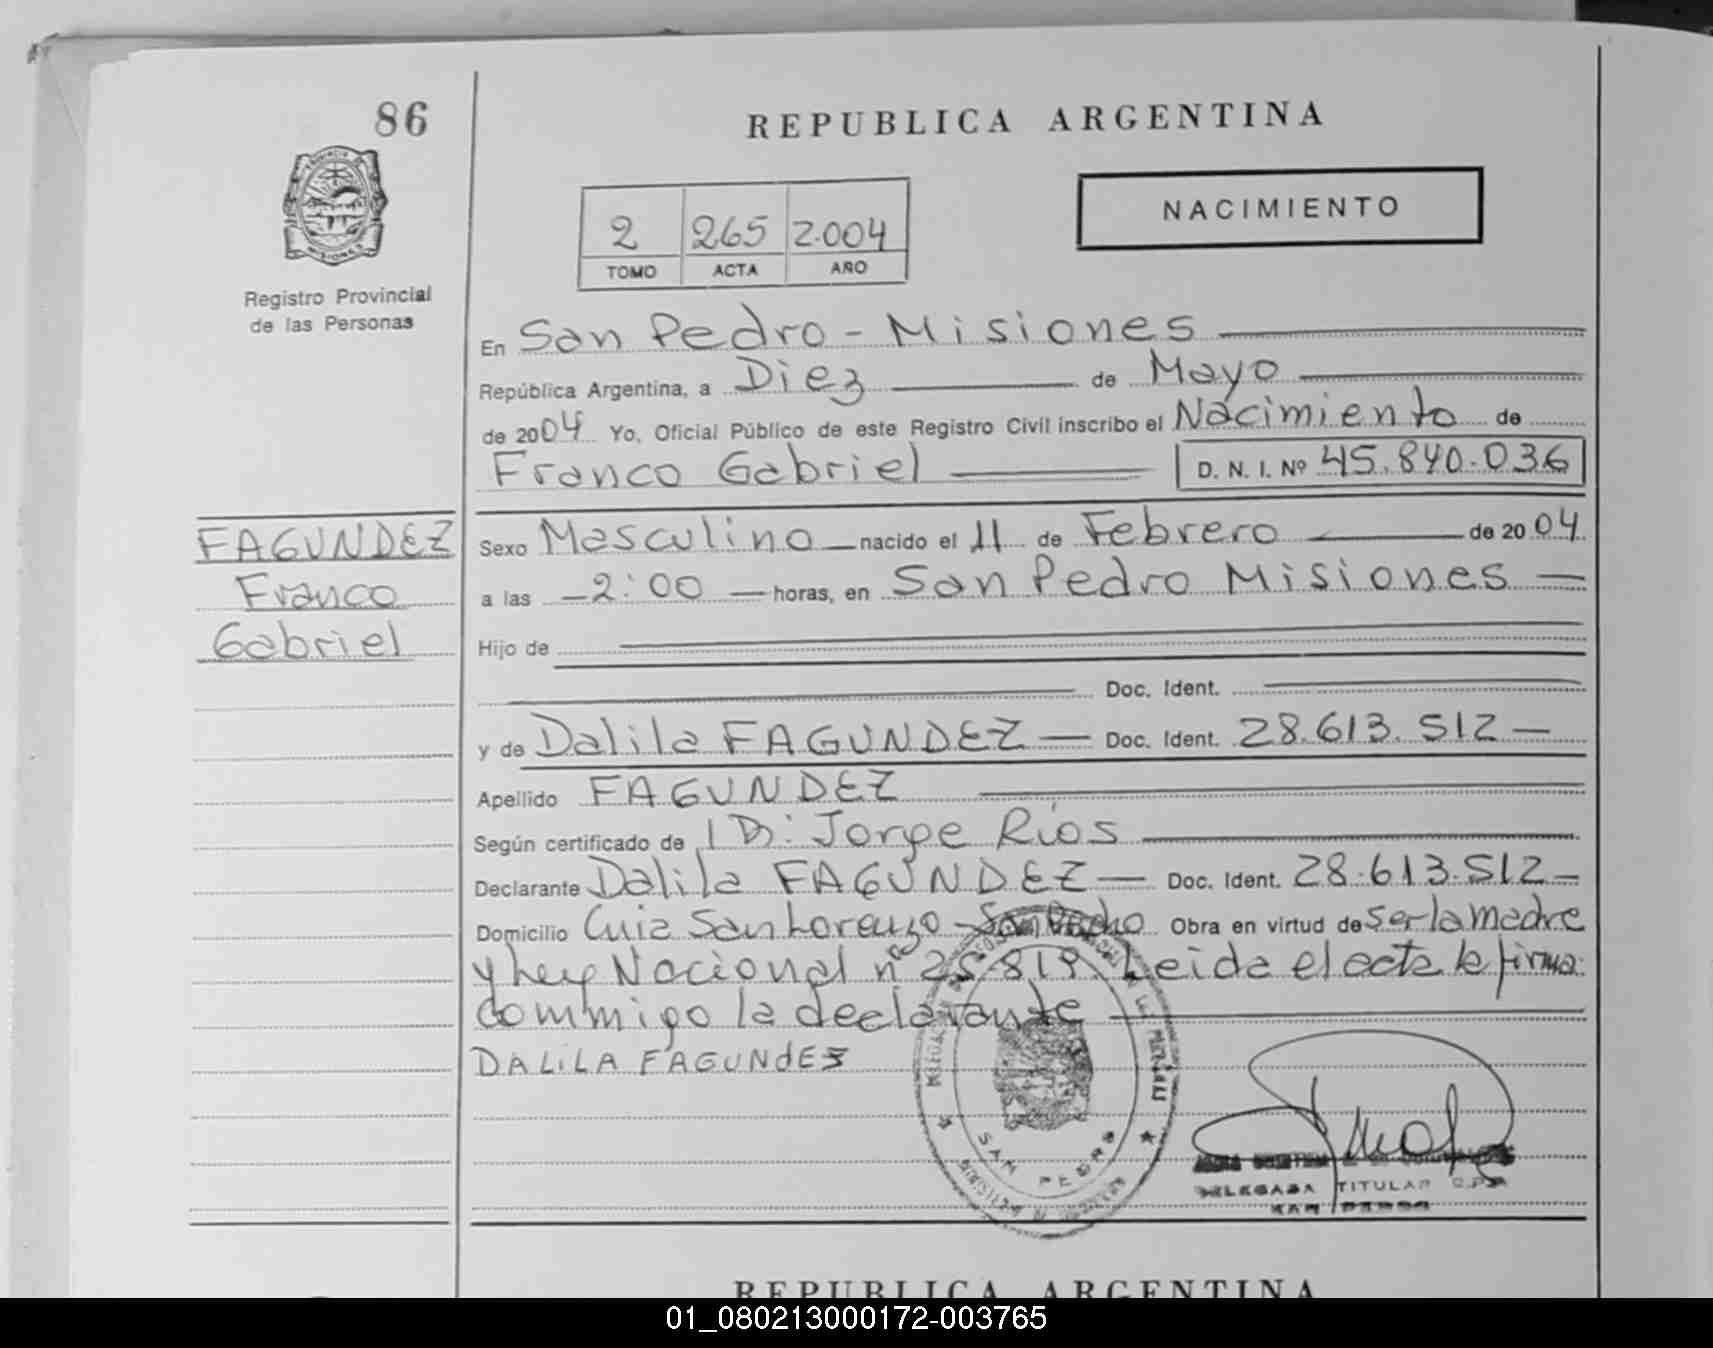 86
REPUBLICA ARGENTINA
NACIMIENTO
2 265 2.004
TOMO ACTA AÑO
Registro Provincial
de las Personas
En San Pedro - Misiones
República Argentina, a Diez de Mayo
de 2004 Yo, Oficial Público de este Registro Civil inscribo el Nacimiento de
Franco Gabriel D. N. I. Nº 45.840.036
FAGUNDEZ
Franco
Gabriel
Sexo Masculino nacido el 11 de Febrero de 2004
a las 2:00 horas, en San Pedro Misiones
Hijo de
Doc. Ident.
y de Dalila FAGUNDEZ Doc. Ident. 28.613.512
Apellido FAGUNDEZ
Según certificado de Jorge Ríos
Declarante Dalila FAGUNDEZ Doc. Ident. 28.613.512
Domicilio San Lorenzo - San Pedro Obra en virtud de ser la madre
y Ley Nacional nº 25.819. Leida el acta la firma
commigo la declarante
DALILA FAGUNDEZ
SAN PEDRO
DELEGADA TITULAR
SAN PEDRO
REPUBLICA ARGENTINA
01_080213000172-003765